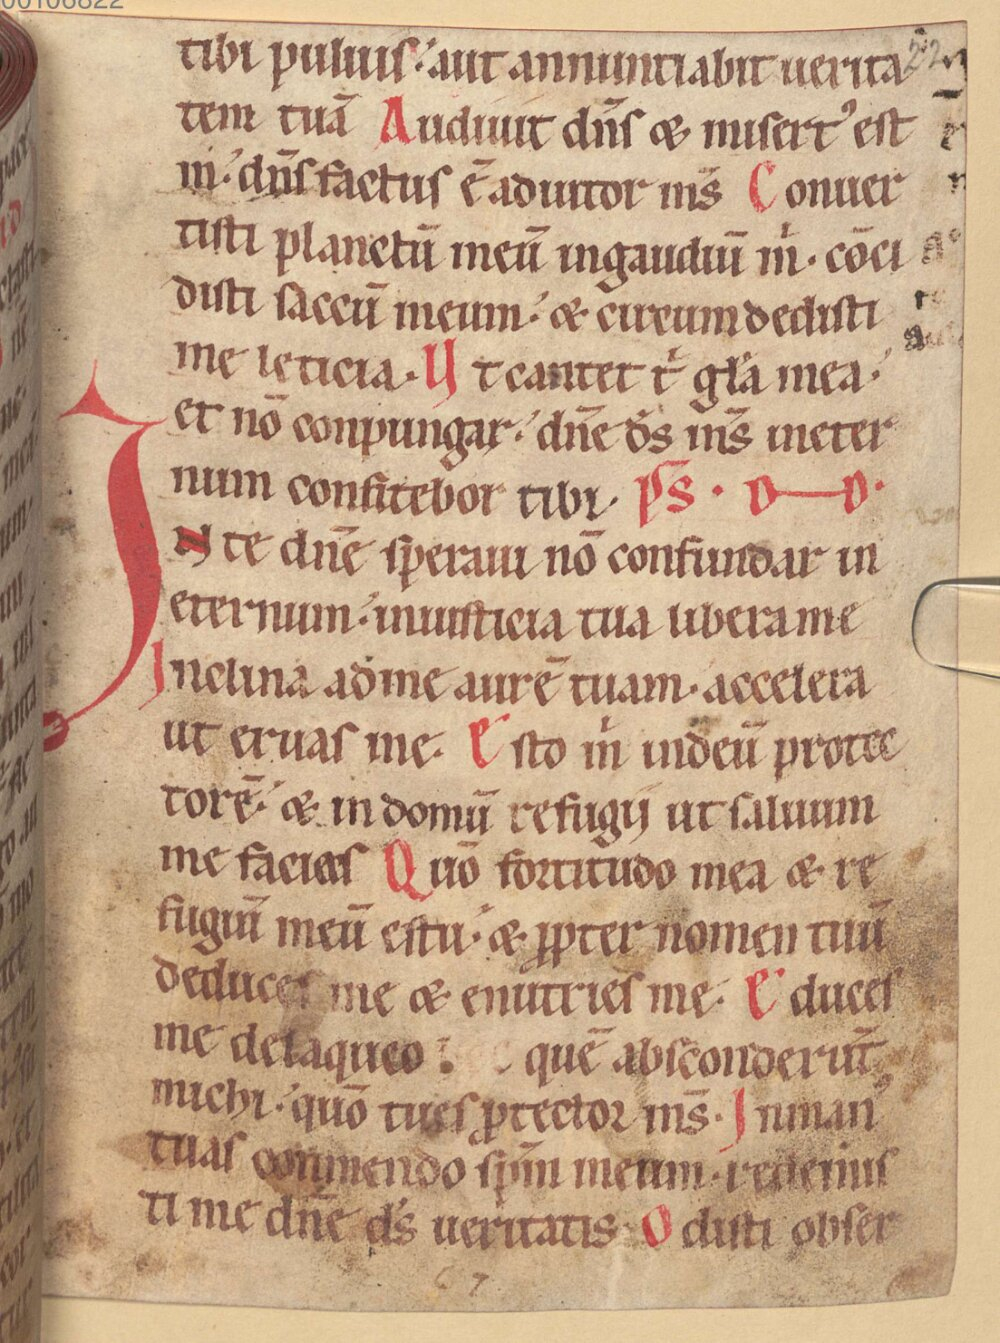 00106822
tibi puluis : aut annuntiabit uerita
tem tuā Audiuit dn̄s & misert᷒ est
m̄ : dn̄s factus ē adiutor ms̄ Conuer
tisti planctū meū ingaudiū m̄ . cōci
disti saccū meum : & circumdedisti
me leticia . Ut cantet t̄ gl̄a mea :
et nō conpungar : dn̄e ds̄ ms̄ ineter
num confitebor tibi . ps̄ . D—D .
IN te dn̄e speraui nō confundar in
eternum : iniusticia tua libera me
Inclina adme aurē tuam . accelera
ut eruas me . Esto m̄ indeū protec
torē : & in domū refugij ut saluum
me facias Quō fortitudo mea & re
fugiū meū estu : & ꝓpter nomen tuū
deduces me & enutries me . Educes
me delaqueo quē absconderūt
michi : quō tu es ꝓtector ms̄ . Inman
tuas commendo sp̄m meum . redemis
ti me dn̄e ds̄ ueritatis Odisti obser